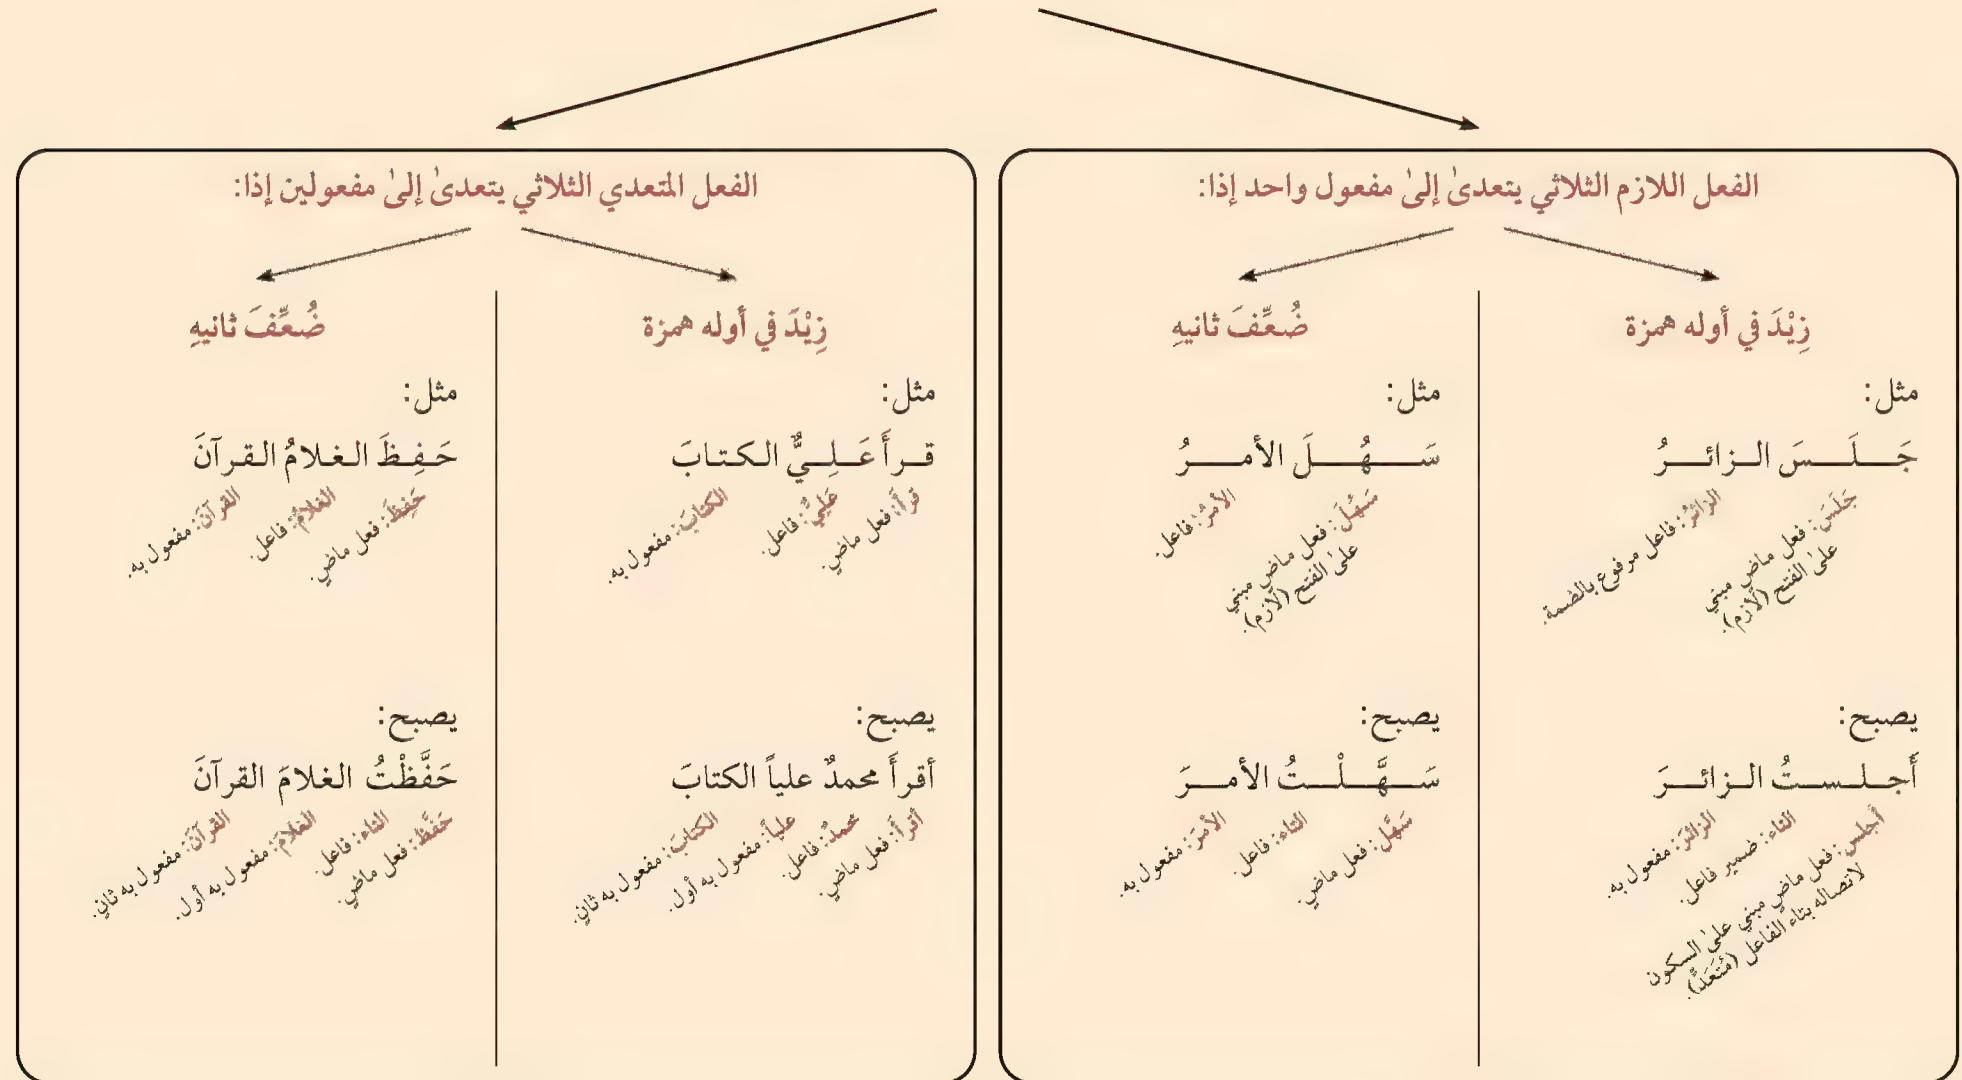 الفعل اللازم الثلاثي يتعدىٰ إلىٰ مفعول واحد إذا:
زِيْدَ في أوله همزة
مثل:
جَـلَـسَ الـزائـرُ
جَلَسَ: فعل ماضٍ مبني
علىٰ الفتح (لازم).
الزائرُ: فاعل مرفوع بالضمة.
يصبح:
أَجـلـسـتُ الـزائـرَ
أجلس: فعل ماضٍ مبني علىٰ السكون
لاتصاله بتاء الفاعل (مُتَعَدٍّ).
التاء: ضمير فاعل.
الزائرَ: مفعول به.
ضُعِّفَ ثانيهِ
مثل:
سَـهُـلَ الأمـرُ
سَهُلَ: فعل ماضٍ مبني
علىٰ الفتح (لازم).
الأمرُ: فاعل.
يصبح:
سَـهَّـلْـتُ الأمـرَ
سَهَّل: فعل ماضٍ.
التاء: فاعل.
الأمرَ: مفعول به.
الفعل المتعدي الثلاثي يتعدىٰ إلىٰ مفعولين إذا:
زِيْدَ في أوله همزة
مثل:
قـرأَ عَـلِـيٌّ الـكـتـابَ
قرأَ: فعل ماضٍ.
عَليٌّ: فاعل.
الكتابَ: مفعول به.
يصبح:
أقرأَ محمدٌ علياً الكتابَ
أقرأَ: فعل ماضٍ.
محمدٌ: فاعل.
علياً: مفعول به أول.
الكتابَ: مفعول به ثانٍ.
ضُعِّفَ ثانيهِ
مثل:
حَـفِـظَ الـغـلامُ الـقـرآنَ
حَفِظَ: فعل ماضٍ.
الغلامُ: فاعل.
القرآنَ: مفعول به.
يصبح:
حَفَّظْتُ الغلامَ القرآنَ
حَفَّظَ: فعل ماضٍ.
التاء: فاعل.
الغلامَ: مفعول به أول.
القرآنَ: مفعول به ثانٍ.